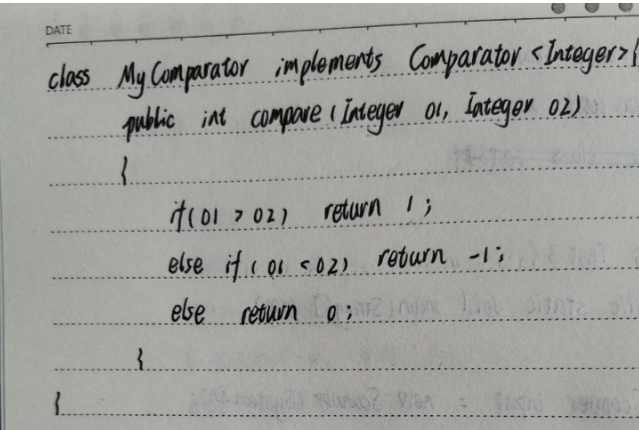 DATE
class MyComparator implements Comparator <Integer>{
public int compare (Integer o1, Integer o2)
{
if(o1 > o2) return 1;
else if (o1 < o2) return -1;
else return 0;
}
}